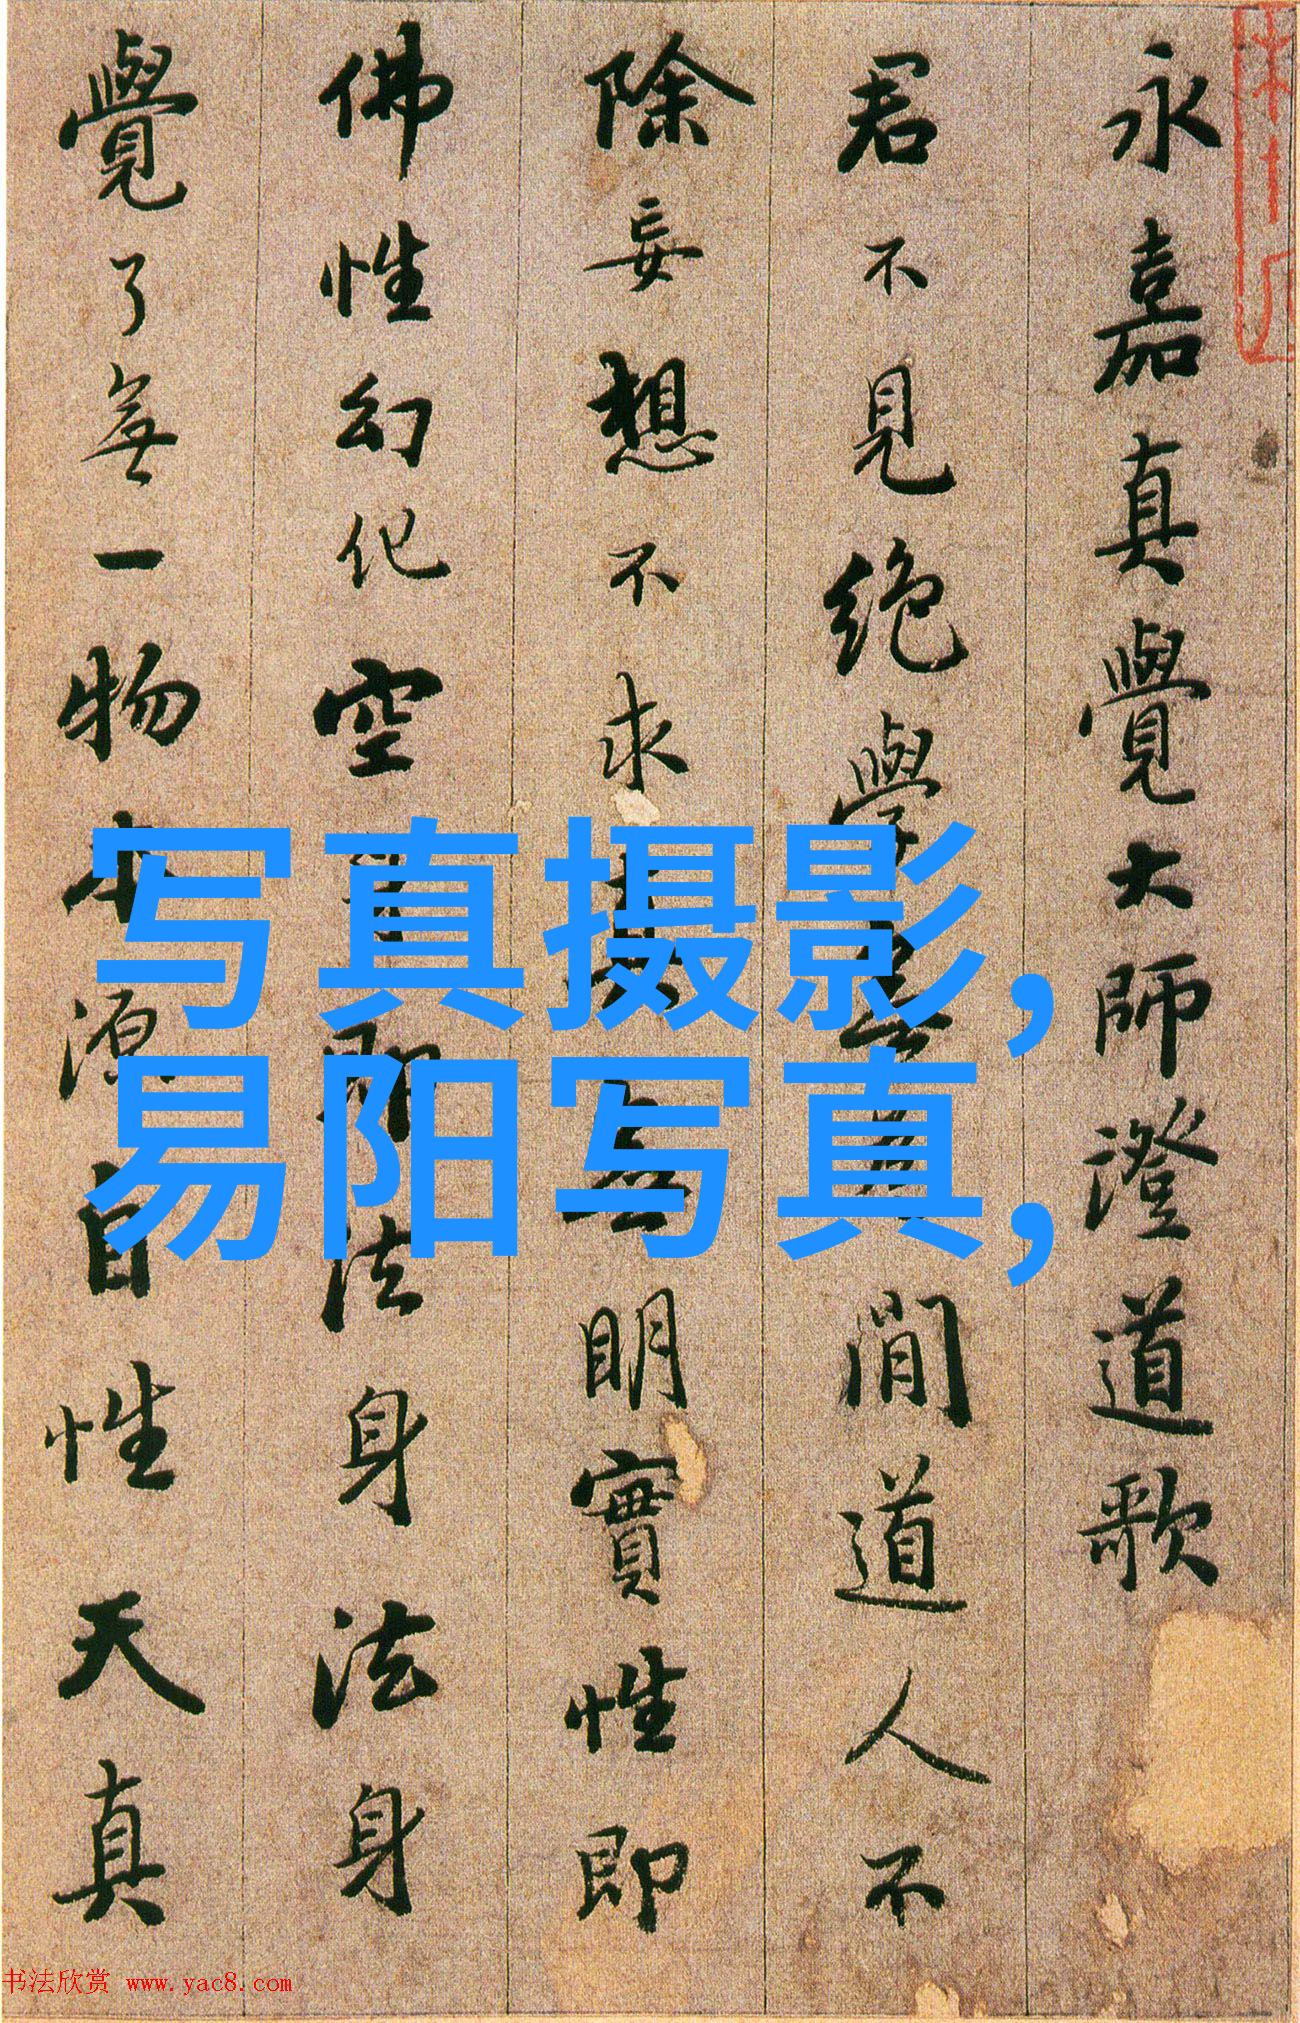 永嘉真覺大師澄道歌
君不見絶學閒道人不
除妄想不求明實性即
佛性幻化空法身法身
覺了無一物本源自性天真
写真摄影,
易阳写真,
书法欣赏 www.yac8.com